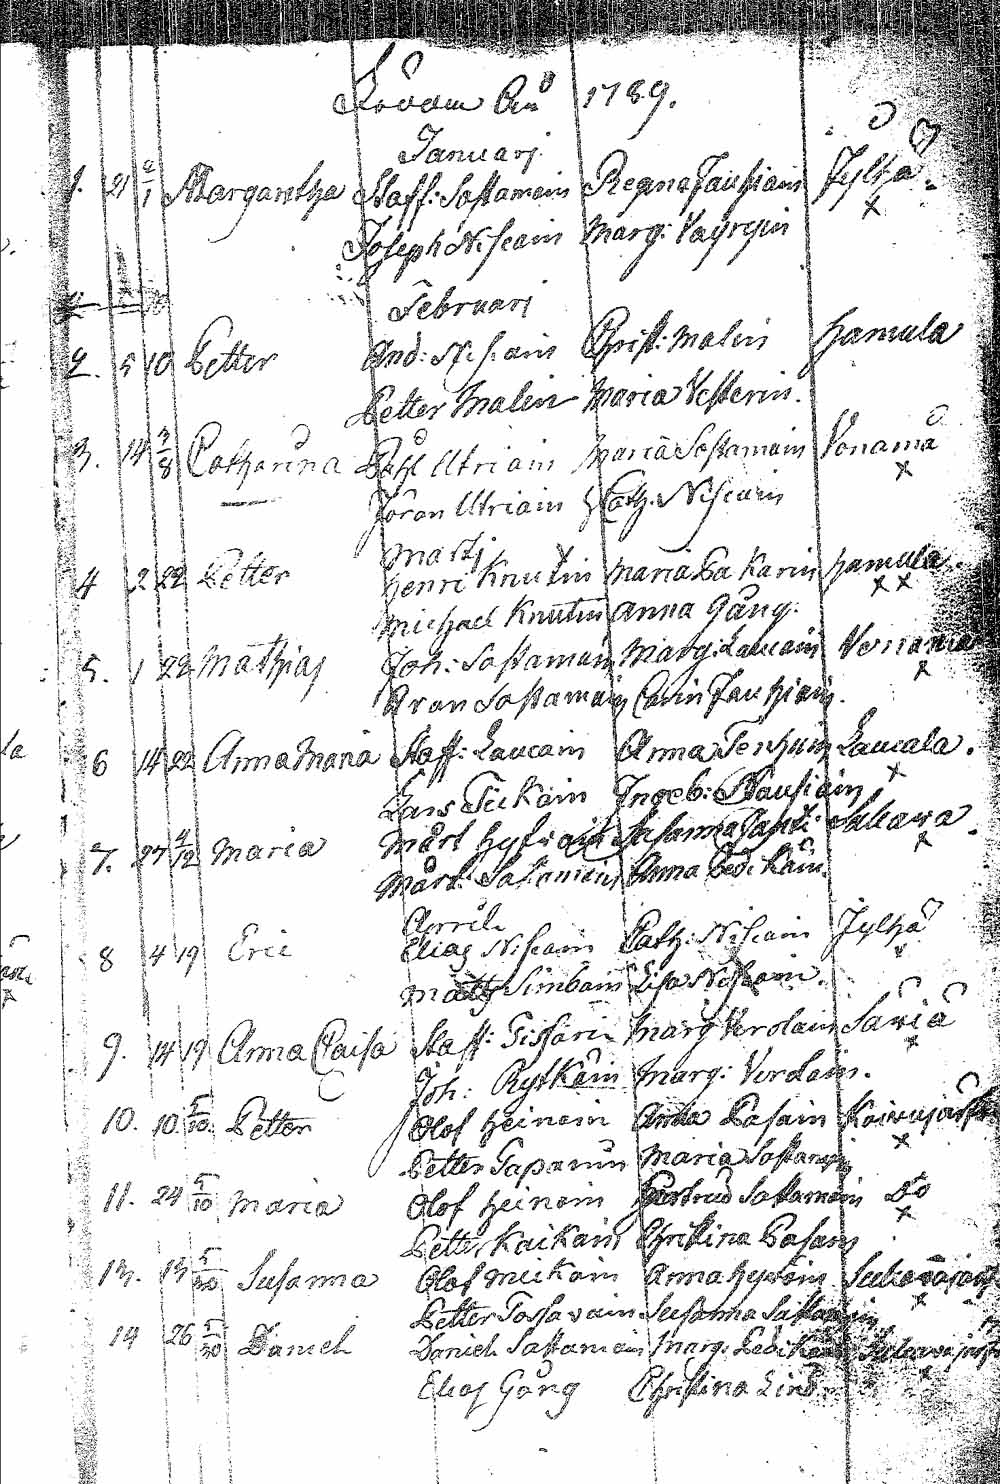 Födom Ao 1789.
Januarj
1. 21 2/1 Margaretha Staff: Sastamoin Regna Jauhiain Jylhä
Joseph Niskain Marg: Väyrysin
Februarj
2. 5 10 Petter And: Niskain Christ: Malin Hamula
Petter Malin Maria Vesterin.
3. 14 3/8 Catharina Påhl Utriain Maria Sastamoin Vonamä
Jöran Utriain Cath. Niskain
Marti
4 2 22 Petter Henri Knutin Maria Pakarin Hamula
Michael Knutin Anna Gång.
5. 1 22 Mathias Joh: Sastamoin Marg: Laucain Vonamä
Aron Sastamoin Carin Jauhiain.
6 14 22 Anna Maria Staff: Laucain Anna Tenhuin Laucala.
Lars Tickain Ingeb: Nausiain
7. 27 4/12 Maria Mårt Hyfväin Susanna
Mårt: Sastamoin Anna Ledikäin.
Aprill
8 4 19 Eric Elias Niskain Cath: Niskain Jylhä
Matts Simbain Lisa Niskain.
9. 14 19 Anna Caisa Staff: Tissari Marg Verolain Säviä
Joh: Rytkäin Marg: Verolain.
10. 10 5/10 Petter Olof Heinoin Anna Pasain Koivujärfvi
Petter Tapanin Maria Sastamoin
11. 24 5/10 Maria Olof Heinoin Gertrud Sastamoin Do
Petter Kaikain Christina Pasain
13. 13 5/20 Susanna Olof Mickain Anna Hyvöin
Petter Tossavain Susanna Sastamoin
14 26 5/20 Daniel Daniel Sastamoin Marg. Ledikäin
Elias Gång Christina Lind